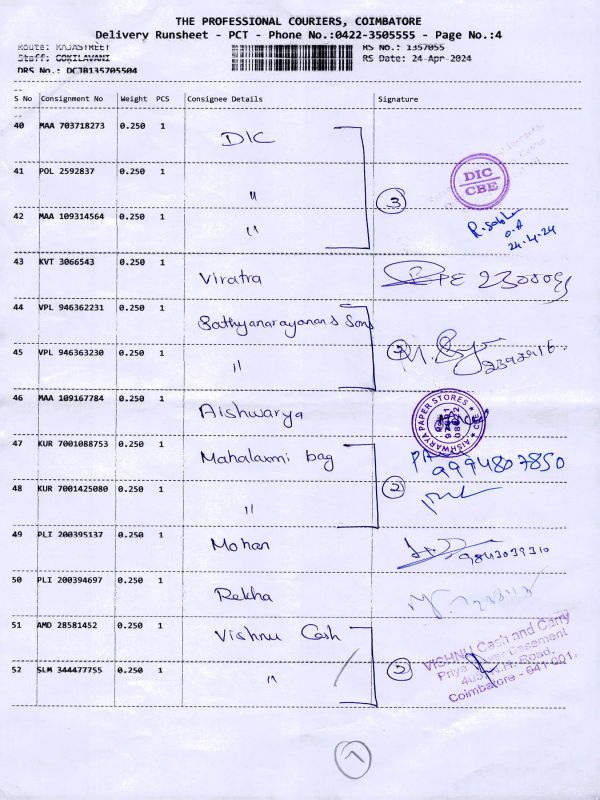 THE PROFESSIONAL COURIERS, COIMBATORE
Delivery Runsheet - PCT - Phone No.:0422-3505555 - Page No.:4
Route: RAJASTREET
RS No.: 1357055
Staff: GOKILAVANI
RS Date: 24-Apr-2024
DRS No.: DCJB135705504
S No Consignment No Weight PCS Consignee Details Signature
40 MAA 703718273 0.250 1 DIC
41 POL 2592837 0.250 1 "
DIC
CBE
3
42 MAA 109314564 0.250 1 "
24.4.24
43 KVT 3066543 0.250 1 Viratra
44 VPL 946362231 0.250 1 Sathyanarayanan & Sons
45 VPL 946363230 0.250 1 "
46 MAA 109167784 0.250 1 Aishwarya
AISHWARYA PAPER STORES
CBE
47 KUR 7001088753 0.250 1 Mahalaxmi bag
9994807850
48 KUR 7001425080 0.250 1 "
2
49 PLI 200395137 0.250 1 Mohan
9843039310
50 PLI 200394697 0.250 1 Rekha
51 AMD 28581452 0.250 1 Vishnu Cash
VISHNU Cash and Carry
52 SLM 344477755 0.250 1 "
Road,
Coimbatore - 641 001.